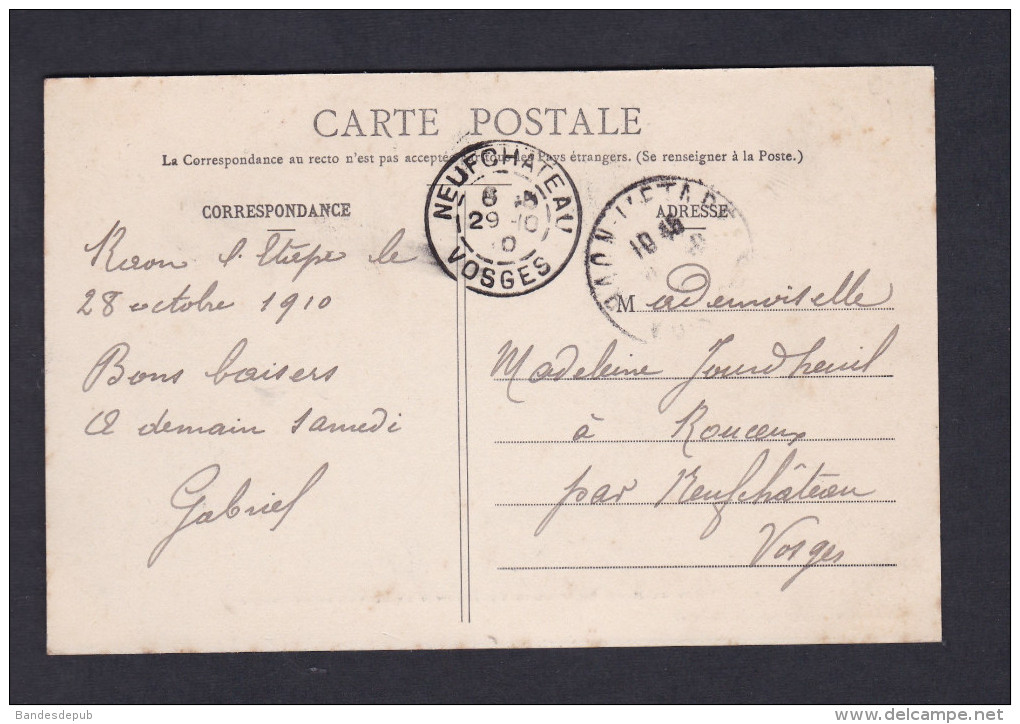 CARTE POSTALE
La Correspondance au recto n'est pas acceptée par tous les Pays étrangers. (Se renseigner à la Poste.)
CORRESPONDANCE
ADRESSE
NEUFCHATEAU
29 10
VOSGES
10 45
Raon l'Etape le
28 octobre 1910
Bons baisers
A demain samedi
Gabriel
Mademoiselle
Madeleine Jourdheuil
à Rouceux
par Neufchâteau
Vosges
Bandesdepub
www.delcampe.net